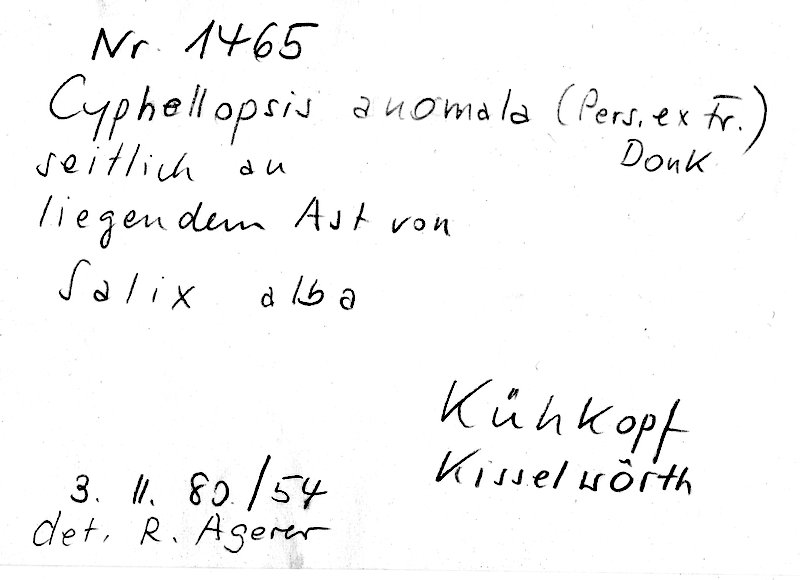 Nr. 1465
Cyphellopsis anomala (Pers. ex Fr.)
Donk
seitlich an
liegendem Ast von
Salix alba
Kühkopf
Kisselwörth
3. 11. 80/54
det. R. Agerer